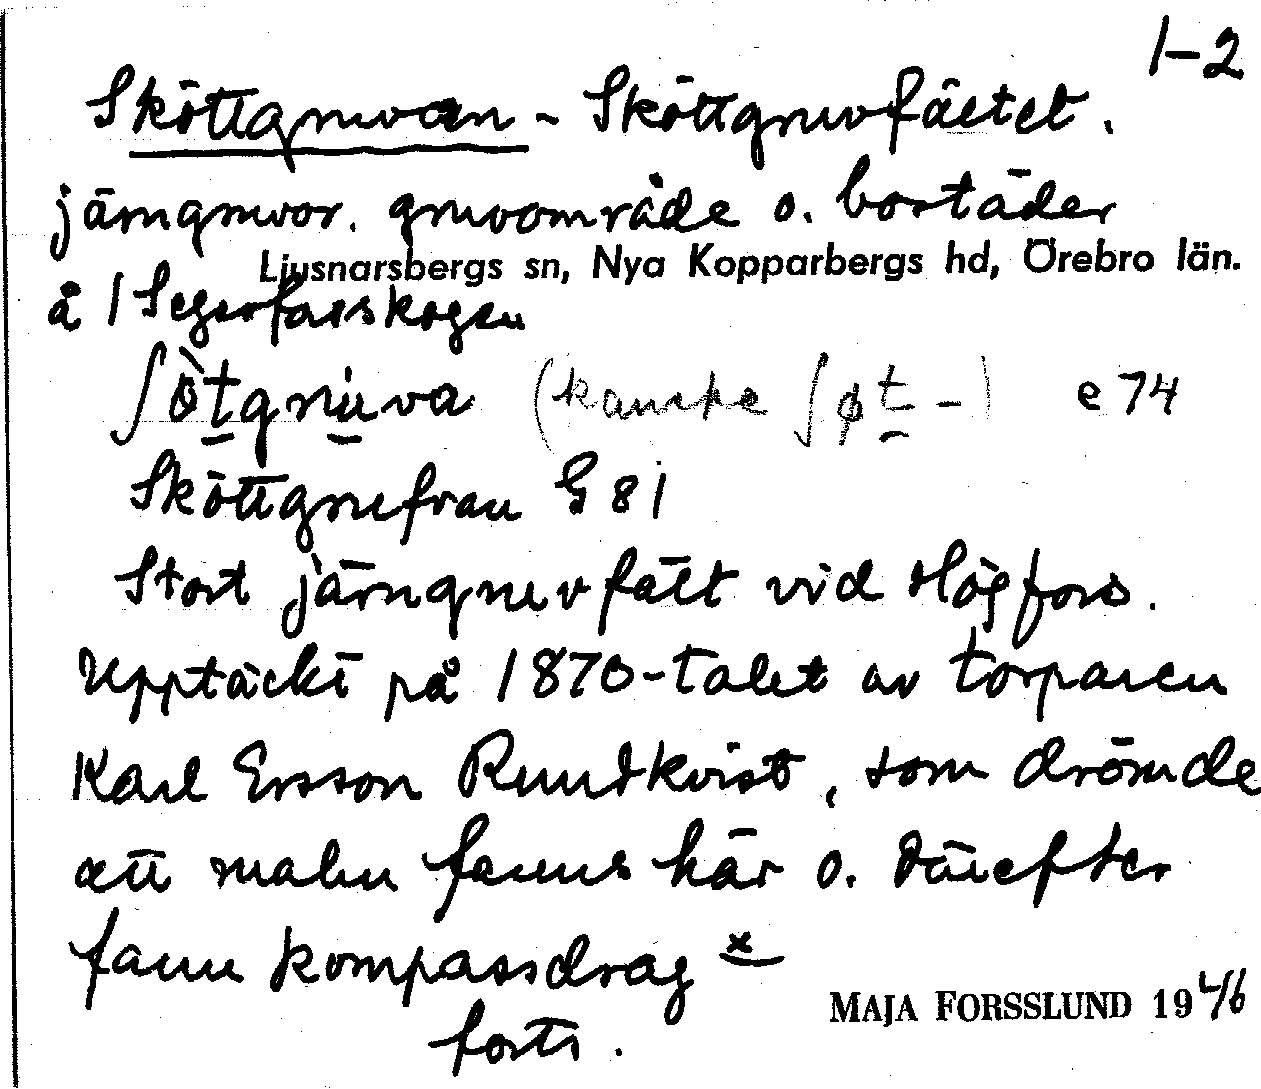 1-2
Sköttgruvan - Sköttgruvfältet.
järngruvor. gruvområde o. bostäder
Ljusnarsbergs sn, Nya Kopparbergs hd, Örebro län.
å 1 Segerfallsskogen
ʃòtgrùva (kanske ʃøt-) e 74
Sköttgrufvan G 81
Stort järngruvfält vid Högfors.
Upptäckt på 1870-talet av torparen
Karl Ersson Rundkvist, som drömde
att malm fanns här o. därefter
fann kompassdrag x
forts.
MAJA FORSSLUND 1946